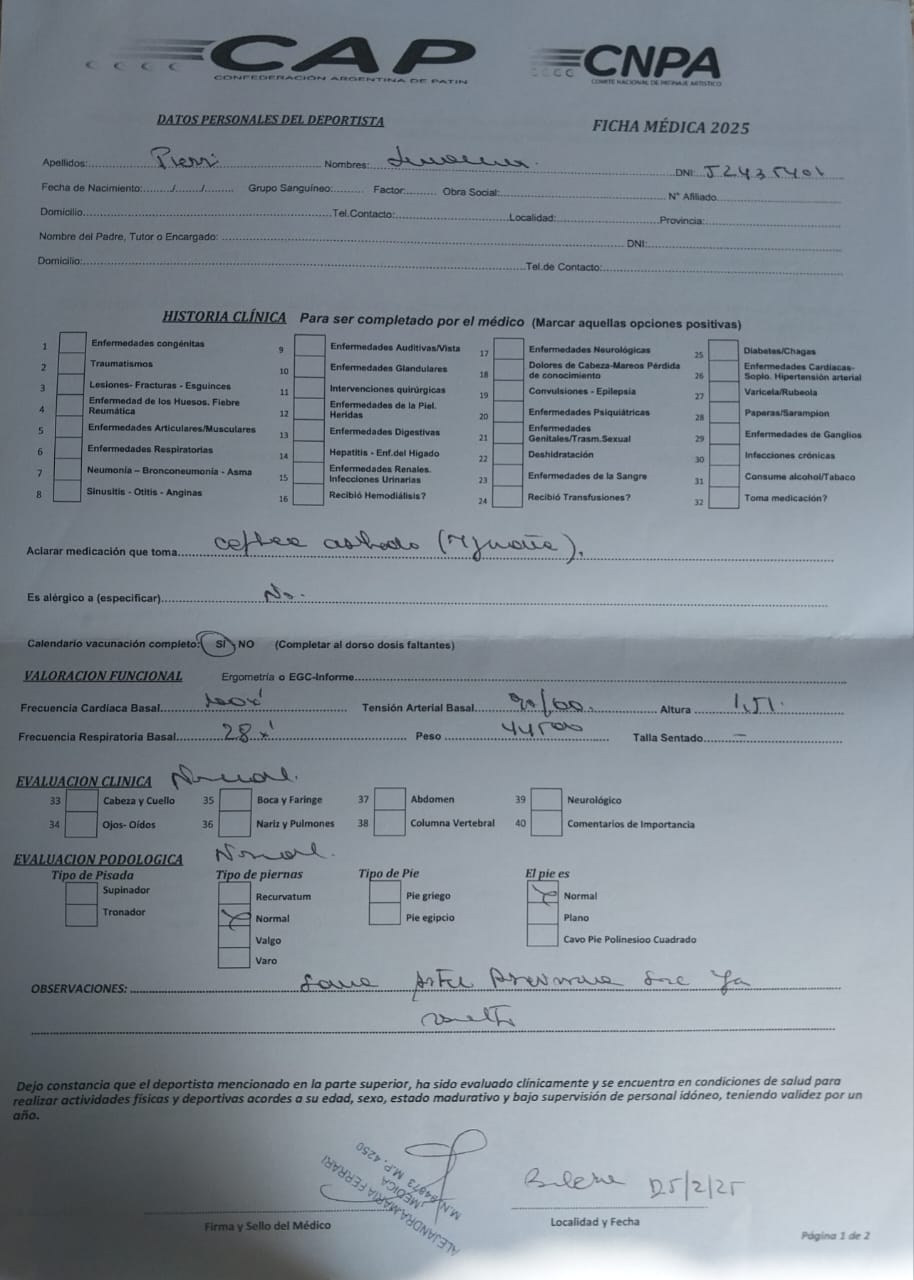 CAP
CONFEDERACIÓN ARGENTINA DE PATIN
CNPA
COMITE NACIONAL DE PATINAJE ARTISTICO
DATOS PERSONALES DEL DEPORTISTA
FICHA MÉDICA 2025
Apellidos: Pierri Nombres: DNI: 52435401
Fecha de Nacimiento:......./......./......... Grupo Sanguíneo:......... Factor:......... Obra Social: N° Afiliado
Domicilio Tel.Contacto: Localidad: Provincia:
Nombre del Padre, Tutor o Encargado: DNI:
Domicilio: Tel.de Contacto:
HISTORIA CLÍNICA Para ser completado por el médico (Marcar aquellas opciones positivas)
1 Enfermedades congénitas
2 Traumatismos
3 Lesiones- Fracturas - Esguinces
4 Enfermedad de los Huesos. Fiebre Reumática
5 Enfermedades Articulares/Musculares
6 Enfermedades Respiratorias
7 Neumonía – Bronconeumonia - Asma
8 Sinusitis - Otitis - Anginas
9 Enfermedades Auditivas/Vista
10 Enfermedades Glandulares
11 Intervenciones quirúrgicas
12 Enfermedades de la Piel. Heridas
13 Enfermedades Digestivas
14 Hepatitis - Enf.del Hígado
15 Enfermedades Renales. Infecciones Urinarias
16 Recibió Hemodiálisis?
17 Enfermedades Neurológicas
18 Dolores de Cabeza-Mareos Pérdida de conocimiento
19 Convulsiones - Epilepsia
20 Enfermedades Psiquiátricas
21 Enfermedades Genitales/Trasm.Sexual
22 Deshidratación
23 Enfermedades de la Sangre
24 Recibió Transfusiones?
25 Diabetes/Chagas
26 Enfermedades Cardíacas- Soplo. Hipertensión arterial
27 Varicela/Rubeola
28 Paperas/Sarampion
29 Enfermedades de Ganglios
30 Infecciones crónicas
31 Consume alcohol/Tabaco
32 Toma medicación?
Aclarar medicación que toma
Es alérgico a (especificar) No.
Calendario vacunación completo: SI NO (Completar al dorso dosis faltantes)
VALORACION FUNCIONAL Ergometría o EGC-Informe
Frecuencia Cardíaca Basal Tensión Arterial Basal 90/60. Altura 1,51.
Frecuencia Respiratoria Basal 28 x' Peso 44500 Talla Sentado —
EVALUACION CLINICA Normal.
33 Cabeza y Cuello 35 Boca y Faringe 37 Abdomen 39 Neurológico
34 Ojos- Oídos 36 Nariz y Pulmones 38 Columna Vertebral 40 Comentarios de Importancia
EVALUACION PODOLOGICA Normal.
Tipo de Pisada Tipo de piernas Tipo de Pie El pie es
Supinador Recurvatum Pie griego Normal
Tronador Normal Pie egipcio Plano
Valgo Cavo Pie Polinesioo Cuadrado
Varo
OBSERVACIONES:
Dejo constancia que el deportista mencionado en la parte superior, ha sido evaluado clínicamente y se encuentra en condiciones de salud para
realizar actividades físicas y deportivas acordes a su edad, sexo, estado madurativo y bajo supervisión de personal idóneo, teniendo validez por un
año.
ALEJANDRA MARIA FERRARI
MEDICA
M.N. 94873 M.P. 4250
25/2/25
Firma y Sello del Médico Localidad y Fecha
Página 1 de 2